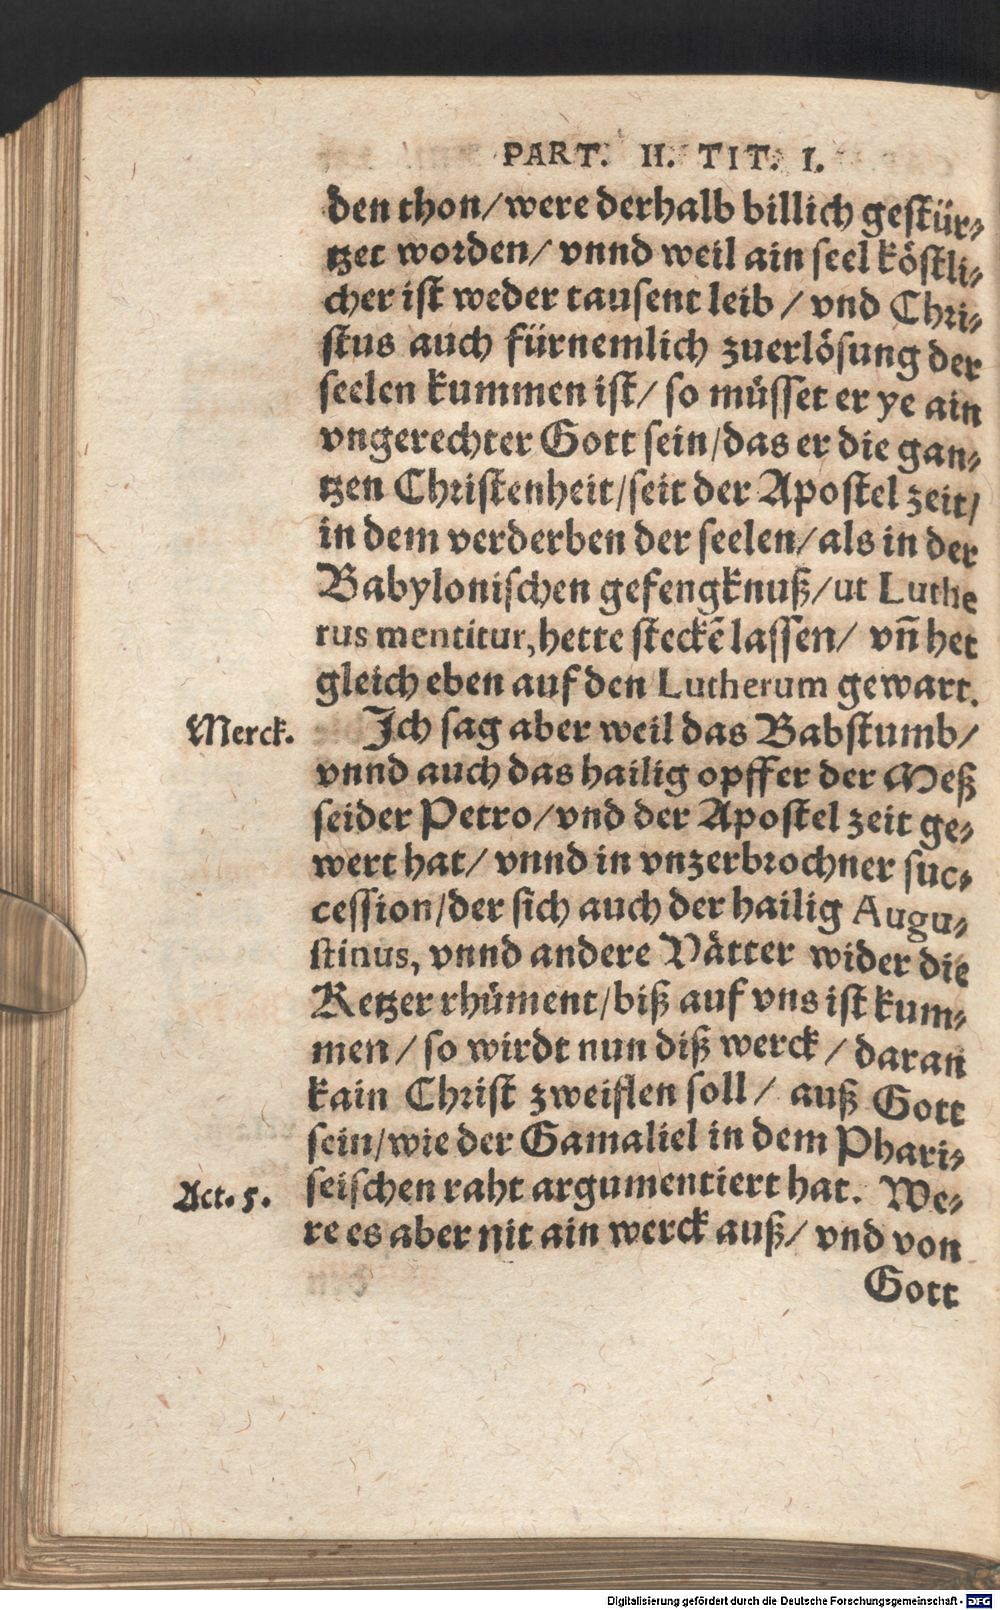 PART. II. TIT. I.
den thon/were derhalb billich gestür⸗
tzet worden/ vnnd weil ain seel köstli⸗
cher ist weder tausent leib / vnd Chri⸗
stus auch fürnemlich zuerlösung der
seelen kummen ist/ so müsset er ye ain
vngerechter Gott sein/das er die gan⸗
tzen Christenheit/seit der Apostel zeit/
in dem verderben der seelen/als in der
Babylonischen gefengknuß/ut Luthe
rus mentitur, hette steckē lassen/ vn̄ het
gleich eben auf den Lutherum gewart.
Merck.
Ich sag aber weil das Babstumb/
vnnd auch das hailig opffer der Meß
seider Petro/vnd der Apostel zeit ge⸗
wert hat/ vnnd in vnzerbrochner suc⸗
cession/der sich auch der hailig Augu⸗
stinus, vnnd andere Vätter wider die
Ketzer rhüment/biß auf vns ist kum⸗
men / so wirdt nun diß werck / daran
kain Christ zweiflen soll / auß Gott
sein/wie der Gamaliel in dem Phari⸗
Act. 5.
seischen raht argumentiert hat. We⸗
re es aber nit ain werck auß/ vnd von
Gott
Digitalisierung gefördert durch die Deutsche Forschungsgemeinschaft - DFG